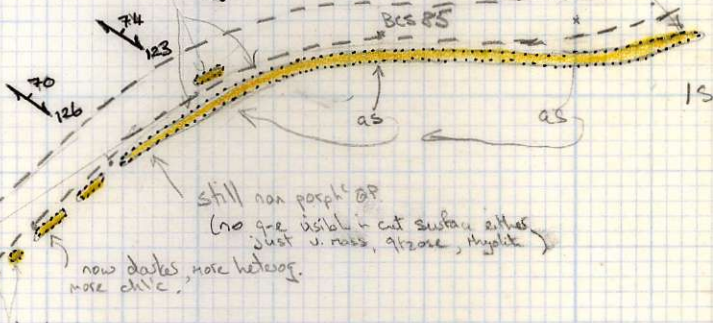 74
123
BCS 85
70
126
as
as
1S
still non porphc QP
(no q-e visible in cut surface either,
just v. mass, qtzose, rhyolite)
now darker, more heterog.
more chlc.